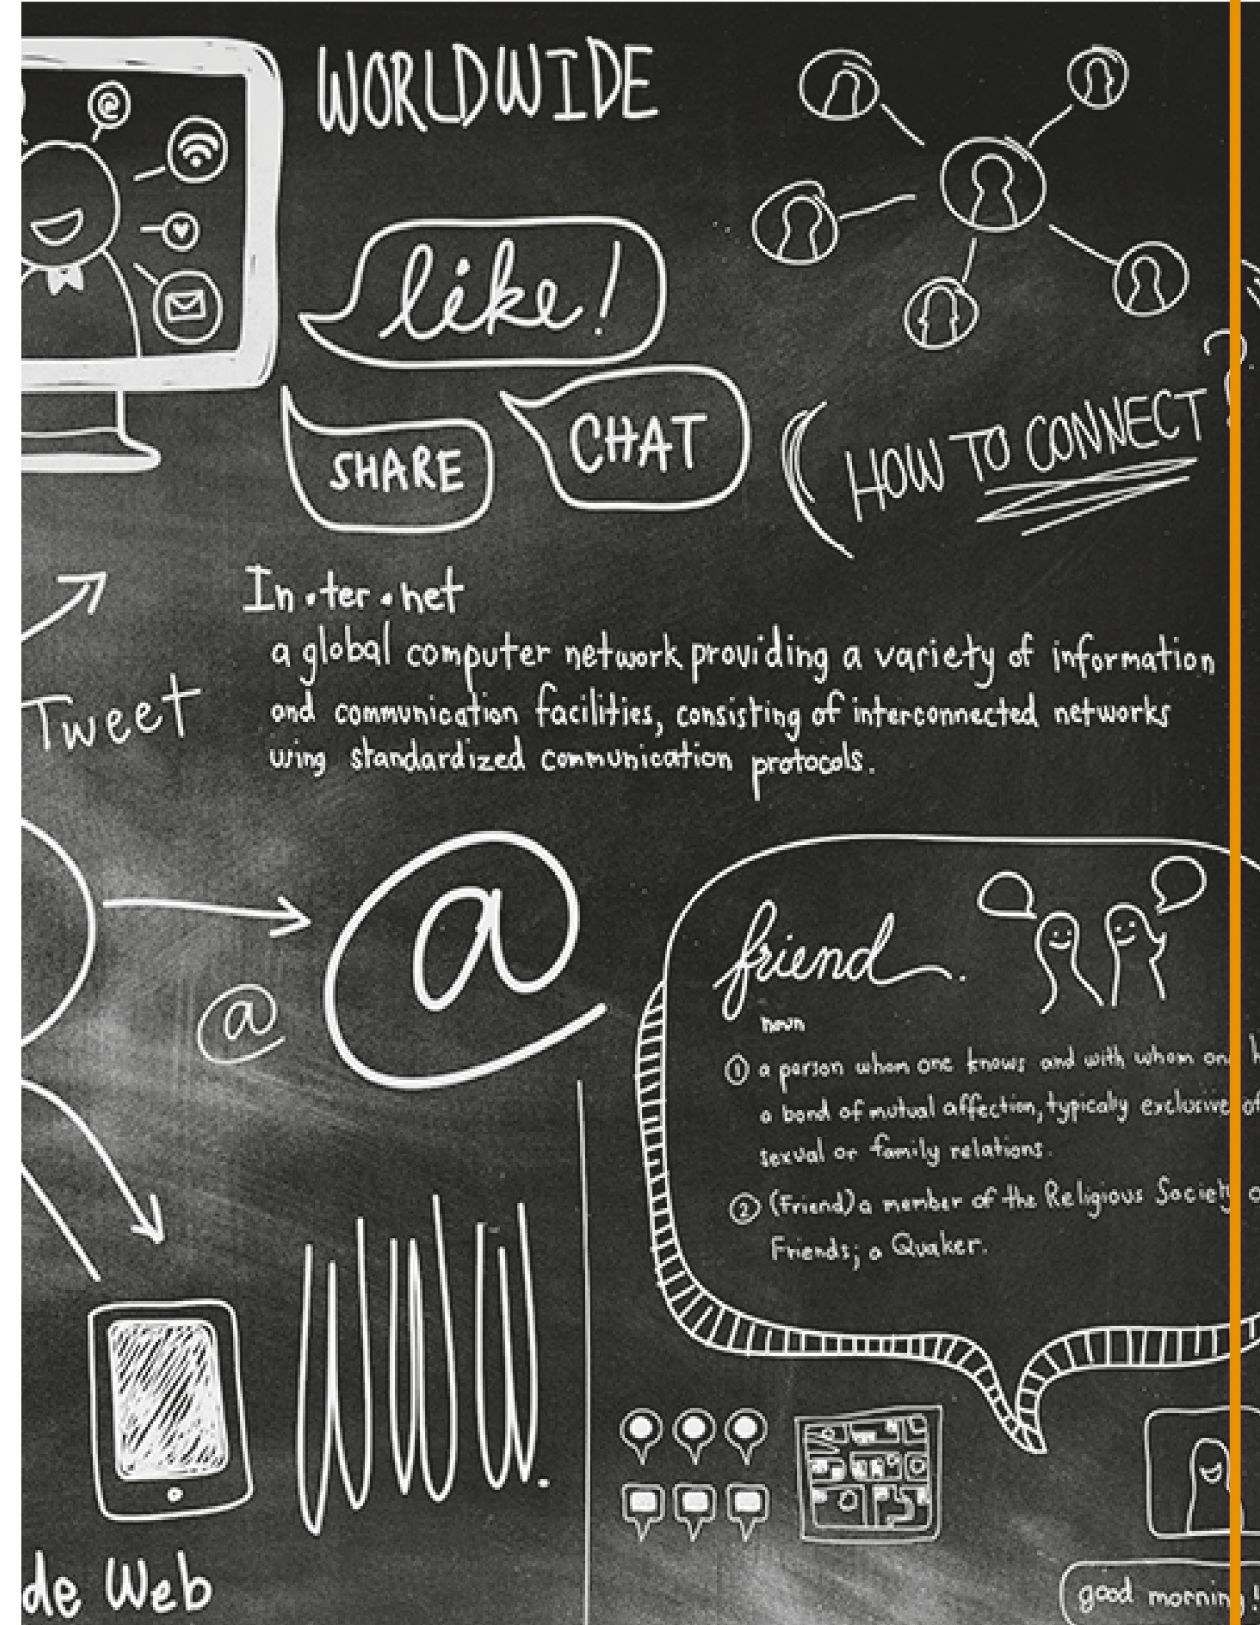 WORLDWIDE
like!
SHARE
CHAT
HOW TO CONNECT
In.ter.net
a global computer network providing a variety of information
and communication facilities, consisting of interconnected networks
using standardized communication protocols.
Tweet
@
@
friend.
noun
① a person whom one knows and with whom on
a bond of mutual affection, typically exclusive of
sexual or family relations.
② (Friend) a member of the Religious Society o
Friends; a Quaker.
WWW.
de Web
good morning!